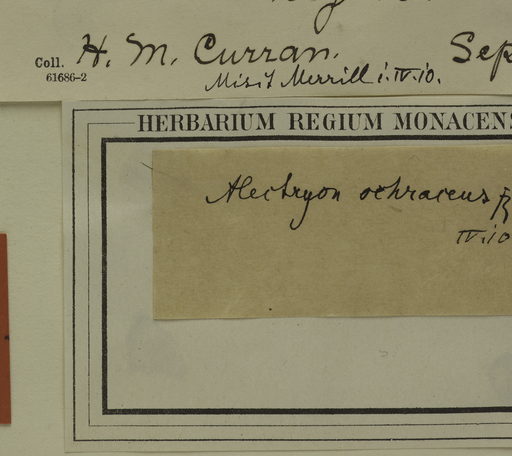 Coll. H. M. Curran. Sep
61686-2
Misit Merrill i.IV.10.
HERBARIUM REGIUM MONACENS
Alectryon ochraceus R
IV.10